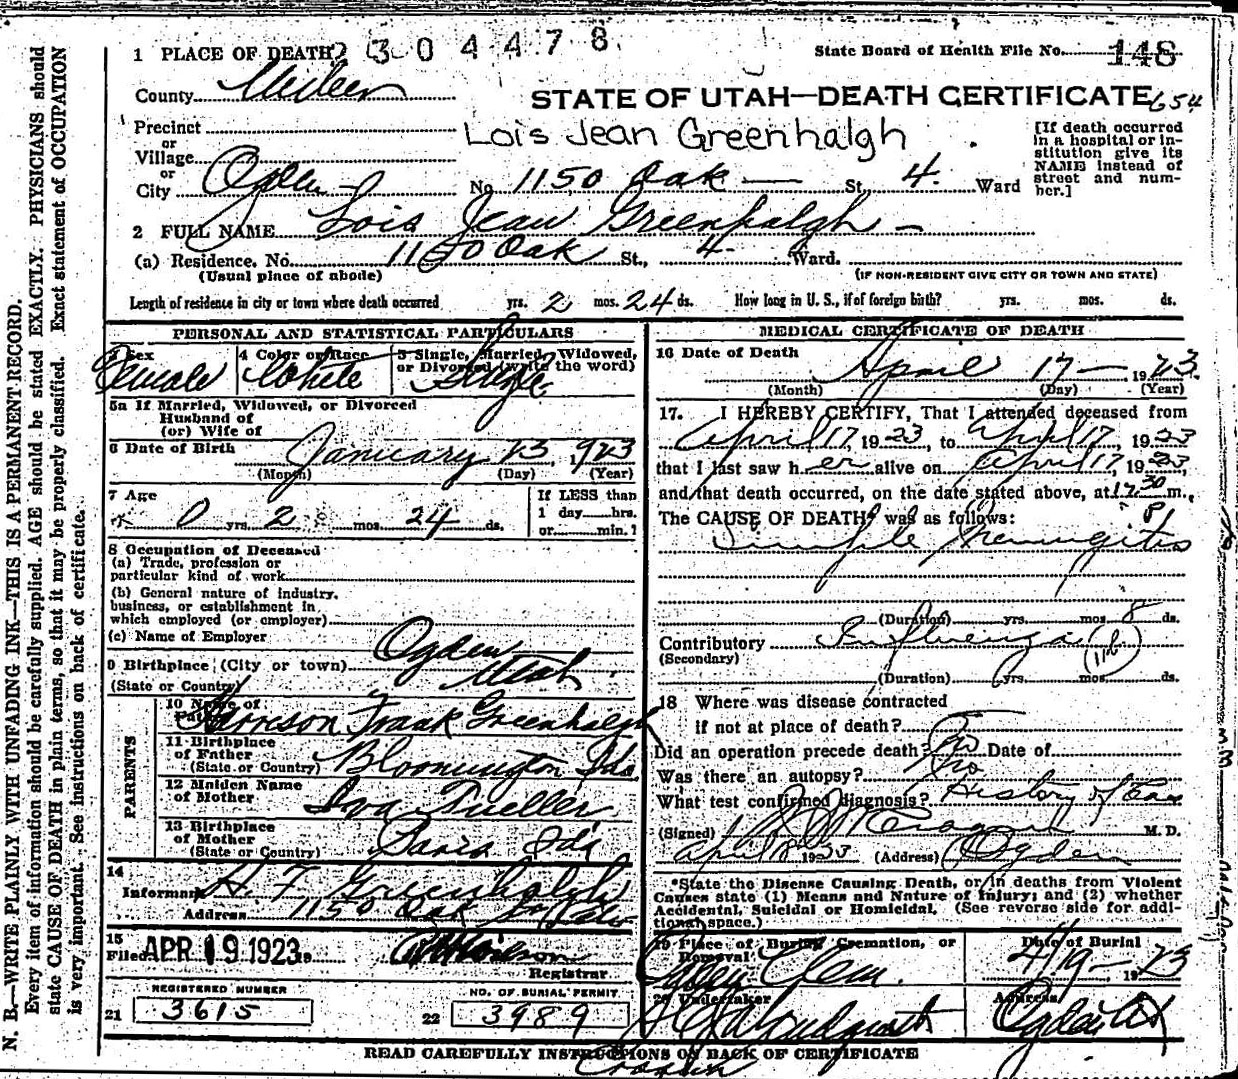 N. B.—WRITE PLAINLY WITH UNFADING INK—THIS IS A PERMANENT RECORD.
Every item of information should be carefully supplied. AGE should be stated EXACTLY. PHYSICIANS should
state CAUSE OF DEATH in plain terms, so that it may be properly classified. Exact statement of OCCUPATION
is very important. See instructions on back of certificate.
1 PLACE OF DEATH 2304478
State Board of Health File No. 148
County
STATE OF UTAH—DEATH CERTIFICATE 654
Precinct
or
Village
or
City Ogden
Lois Jean Greenhalgh
[If death occurred
in a hospital or in-
stitution give its
NAME instead of
street and num-
ber.]
No 1150 Oak St, 4. Ward
2 FULL NAME Lois Jean Greenhalgh
(a) Residence. No. 1150 Oak St., 4 Ward.
(Usual place of abode) (IF NON-RESIDENT GIVE CITY OR TOWN AND STATE)
Length of residence in city or town where death occurred yrs. 2 mos. 24 ds. How long in U. S., if of foreign birth? yrs. mos. ds.
PERSONAL AND STATISTICAL PARTICULARS
3 Sex Female
4 Color or Race White
5 Single, Married, Widowed,
or Divorced (write the word)
Single
5a If Married, Widowed, or Divorced
Husband of
(or) Wife of
6 Date of Birth January 23, 1923
(Month) (Day) (Year)
7 Age 0 yrs. 2 mos. 24 ds.
If LESS than
1 day hrs.
or min.?
8 Occupation of Deceased
(a) Trade, profession or
particular kind of work
(b) General nature of industry,
business, or establishment in
which employed (or employer)
(c) Name of Employer
9 Birthplace (City or town) Ogden
(State or Country) Utah
PARENTS
10 Name of
Father Harrison Frank Greenhalgh
11 Birthplace
of Father
(State or Country) Bloomington Ida
12 Maiden Name
of Mother Iva Tueller
13 Birthplace
of Mother
(State or Country) Paris Ida
14
Informant H. F. Greenhalgh
Address 1150 Oak
15
Filed APR 19 1923
Registrar
REGISTERED NUMBER
21 3615
NO. OF BURIAL PERMIT
22 3989
MEDICAL CERTIFICATE OF DEATH
16 Date of Death
April 17 1923.
(Month) (Day) (Year)
17. I HEREBY CERTIFY, That I attended deceased from
April 17 1923, to April 17, 1923
that I last saw her alive on April 17, 1923,
and that death occurred, on the date stated above, at m.,
The CAUSE OF DEATH was as follows:
Simple Meningitis
(Duration) yrs. mos 8 ds.
Contributory Influenza (11b)
(Secondary)
(Duration) yrs. mos ds.
18 Where was disease contracted
if not at place of death?
Did an operation precede death? No Date of
Was there an autopsy? No
What test confirmed diagnosis? History of Case
(Signed) M. D.
April 18 1923 (Address) Ogden
*State the Disease Causing Death, or in deaths from Violent
Causes state (1) Means and Nature of Injury; and (2) whether
Accidental, Suicidal or Homicidal. (See reverse side for addi-
tional space.)
19 Place of Burial, Cremation, or
Removal
Ogden Cem.
Date of Burial
4/19 1923
20 Undertaker
Address
Ogden Ut
READ CAREFULLY INSTRUCTIONS ON BACK OF CERTIFICATE